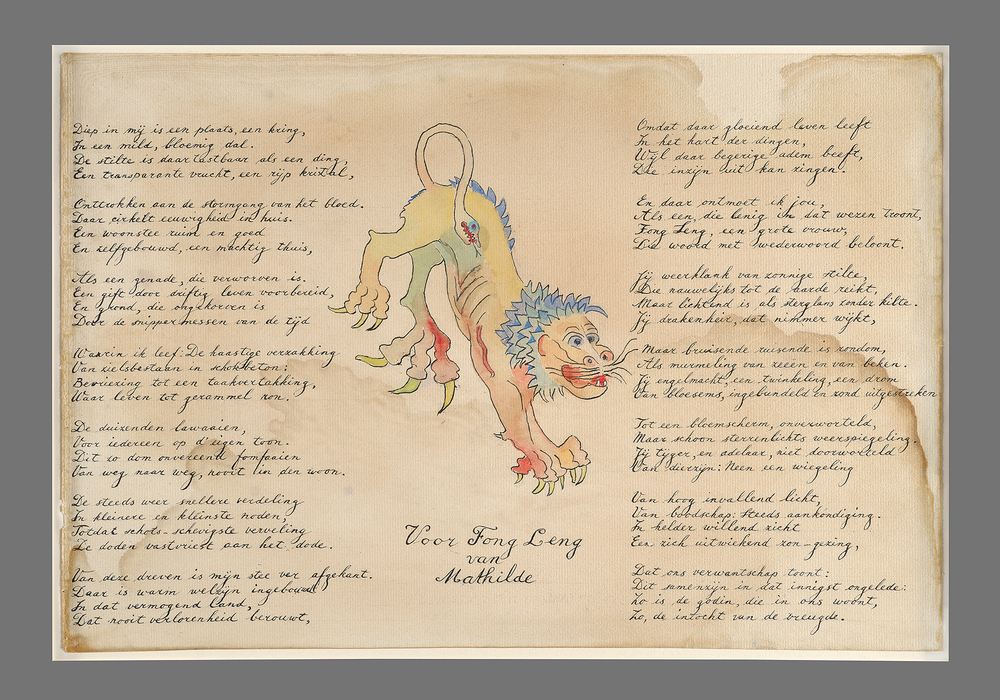 Diep in mij is een plaats, een kring,
In een mild, bloemig dal.
De stilte is daar tastbaar als een ding,
Een transparante vrucht, een rijp kristal,
Onttrokken aan de stormgang van het bloed.
Daar cirkelt eeuwigheid in huis.
Een woonstee ruim en goed
En zelfgebouwd, een machtig thuis,
Als een genade, die verworven is.
Een gift door driftig leven voorbereid,
En grond, die ongekorven is
Door de snippermessen van de tijd
Waarin ik leef: De haastige verzakking
Van zielsbestaan in schokbeton:
Bevriezing tot een taakvertakking,
Waar leven tot gerammel ron.
De duizenden lawaaien,
Voor iedereen op d'eigen toon.
Dit zo dom onvereende fomfaaien
Van weg naar weg, nooit in den woon.
De steeds weer snellere verdeling
In kleinere en kleinste noden,
Totdat schots-schevigste verveling
De doden vastvriest aan het dode.
Van deze dreven is mijn stee ver afgekant.
Daar is warm welzijn ingebouwd
In dat vermogend land,
Dat nooit verlorenheid berouwt,
Voor Fong Leng
van
Mathilde
Omdat daar gloeiend leven leeft
In het hart der dingen,
Wijl daar begerige adem beeft,
Die inzijn uit kan zingen.
En daar ontmoet ik jou,
Als een, die lenig in dat wezen troont,
Fong Leng, een grote vrouw,
Die woord met wederwoord beloont.
Jij weerklank van zonnige stilte,
Die nauwelijks tot de aarde reikt,
Maar lichtend is als sterglans zonder kilte.
Jij drakenheir, dat nimmer wijkt,
Maar bruisende ruisende is rondom,
Als murmeling van zeeen en van beken.
Jij engelmacht, een twinkeling, een drom
Van bloesems, ingebundeld en rond uitgestreken
Tot een bloemscherm, onverworteld,
Maar schoon sterrenlichts weerspiegeling.
Jij tijger, en adelaar, niet doorworteld
Van dierzijn: Neen een wiegeling
Van hoog invallend licht,
Van boodschap: steeds aankondiging.
In helder willend zicht
Een zich uitwiekend zon-gezing,
Dat ons verwantschap toont:
Dit samenzijn in dat innigst ongelede:
Zo is de godin, die in ons woont,
Zo, de intocht van de vreugde.